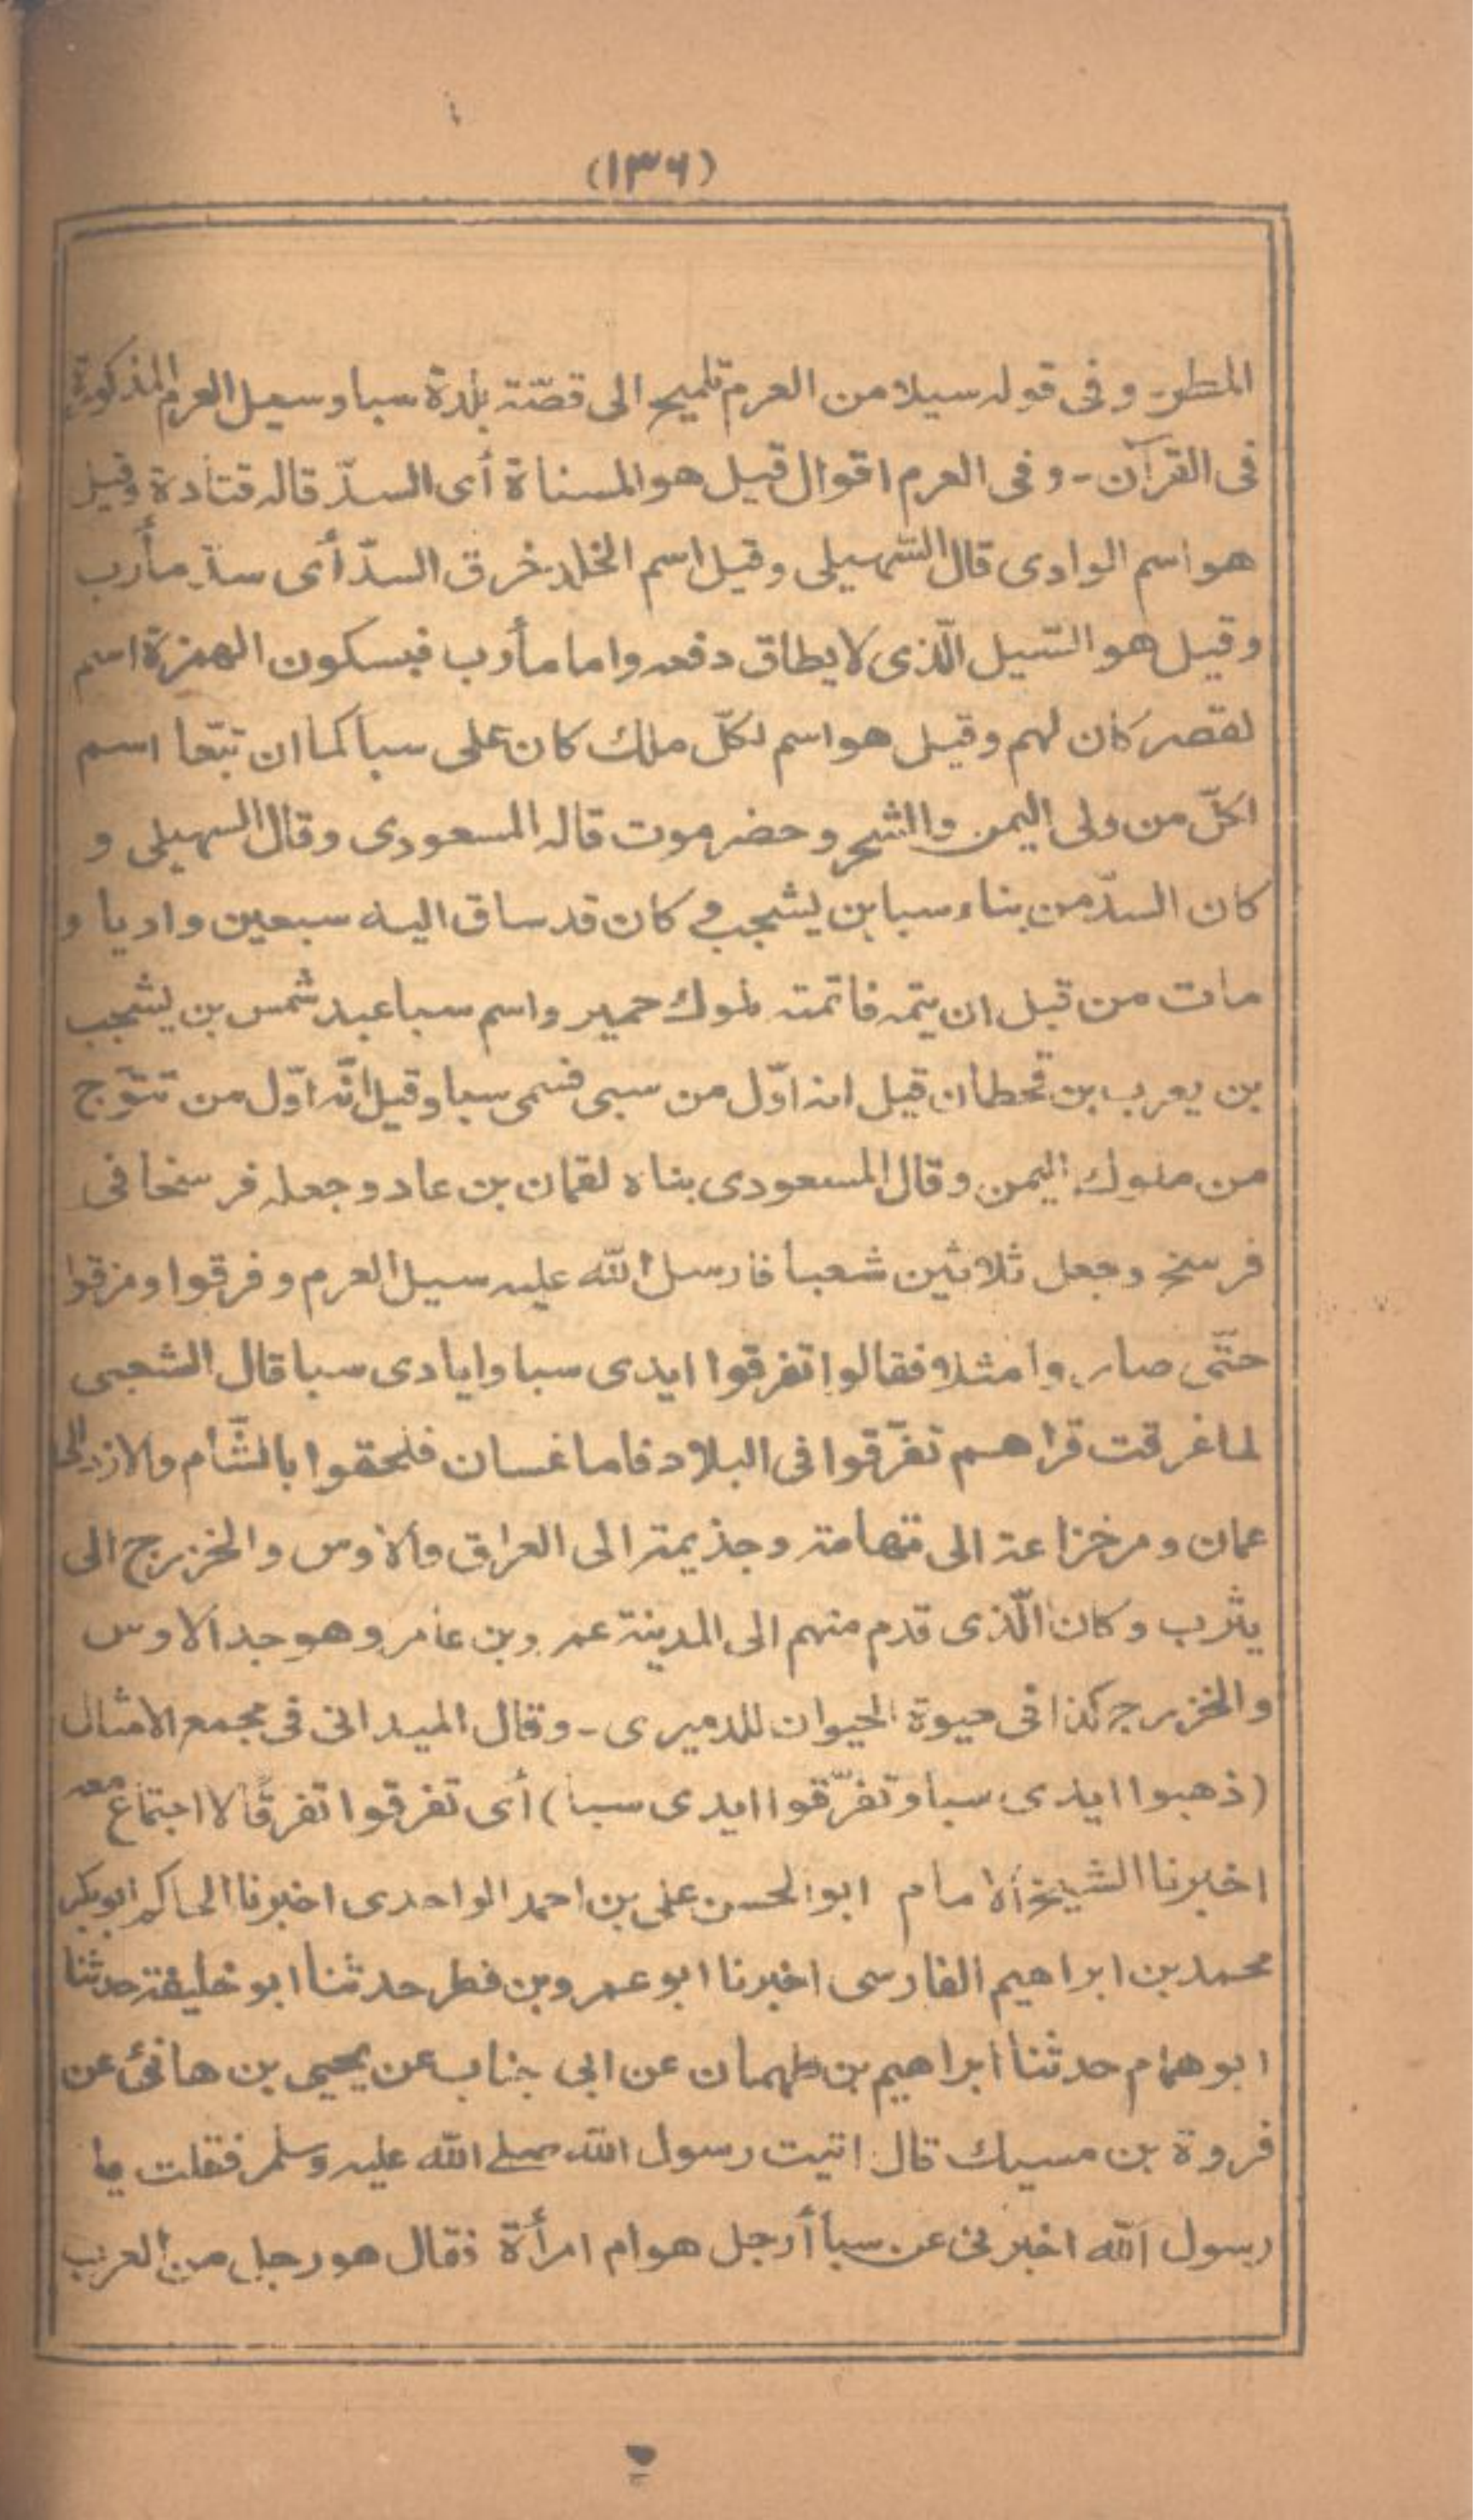 (۱۳۶)
المطر- وفى قوله سيلا من العرم تلميح الى قصّة بلدة سبا وسيل العرم المذكورة
فى القرآن - وفى العرم اقوال قيل هو المسناة أى السدّ قاله قتادة وقيل
هو اسم الوادى قال السّهيلى وقيل اسم الخلد خرق السدّ أى سدّ مأرب
وقيل هو السّيل الّذى لا يطاق دفعه واما مأرب فبسكون الهمزة اسم
لقصر كان لهم وقيل هو اسم لكلّ ملك كان على سبا كما ان تبّعا اسم
لكلّ من ولى اليمن والشحر وحضرموت قاله المسعودى وقال السهيلى و
كان السدّ من بناء سبا بن يشجب و كان قد ساق اليه سبعين واديا و
مات من قبل ان يتمه فاتمته ملوك حمير واسم سبا عبد شمس بن يشجب
بن يعرب بن قحطان قيل انه اوّل من سبى فسمى سبا وقيل انّه اوّل من تتوّج
من ملوك اليمن وقال المسعودى بناه لقمان بن عاد وجعله فرسخا فى
فرسخ وجعل ثلاثين شعبا فارسل اللّه عليه سيل العرم وفرقوا ومزقوا
حتّى صاروا مثلا فقالوا تفرقوا ايدى سبا وايادى سبا قال الشعبى
لما غرقت قراهم تفرّقوا فى البلاد فاما غسان فلحقوا بالشّأم والازد الى
عمان ومرخزاعة الى تهامة وجذيمة الى العراق والاوس والخزرج الى
يثرب وكان الّذى قدم منهم الى المدينة عمرو بن عامر وهو جد الاوس
والخزرج كذا فى حيوة الحيوان للدميرى - وقال الميدانى فى مجمع الامثال
(ذهبوا ايدى سبا وتفرّقوا ايدى سبا) أى تفرقوا تفرقًا لا اجتماع معه
اخبرنا الشيخ الامام ابو الحسن على بن احمد الواحدى اخبرنا الحاكم ابو بكر
محمد بن ابراهيم الفارسى اخبرنا ابو عمرو بن فطر حدثنا ابو خليفة حدثنا
ابو همام حدثنا ابراهيم بن طهمان عن ابى جناب عن يحيى بن هانئ عن
فروة بن مسيك قال اتيت رسول اللّه صلے اللّه عليه وسلم فقلت يا
رسول اللّه اخبرنى عن سبأ أرجل هو ام امرأة فقال هو رجل من العرب